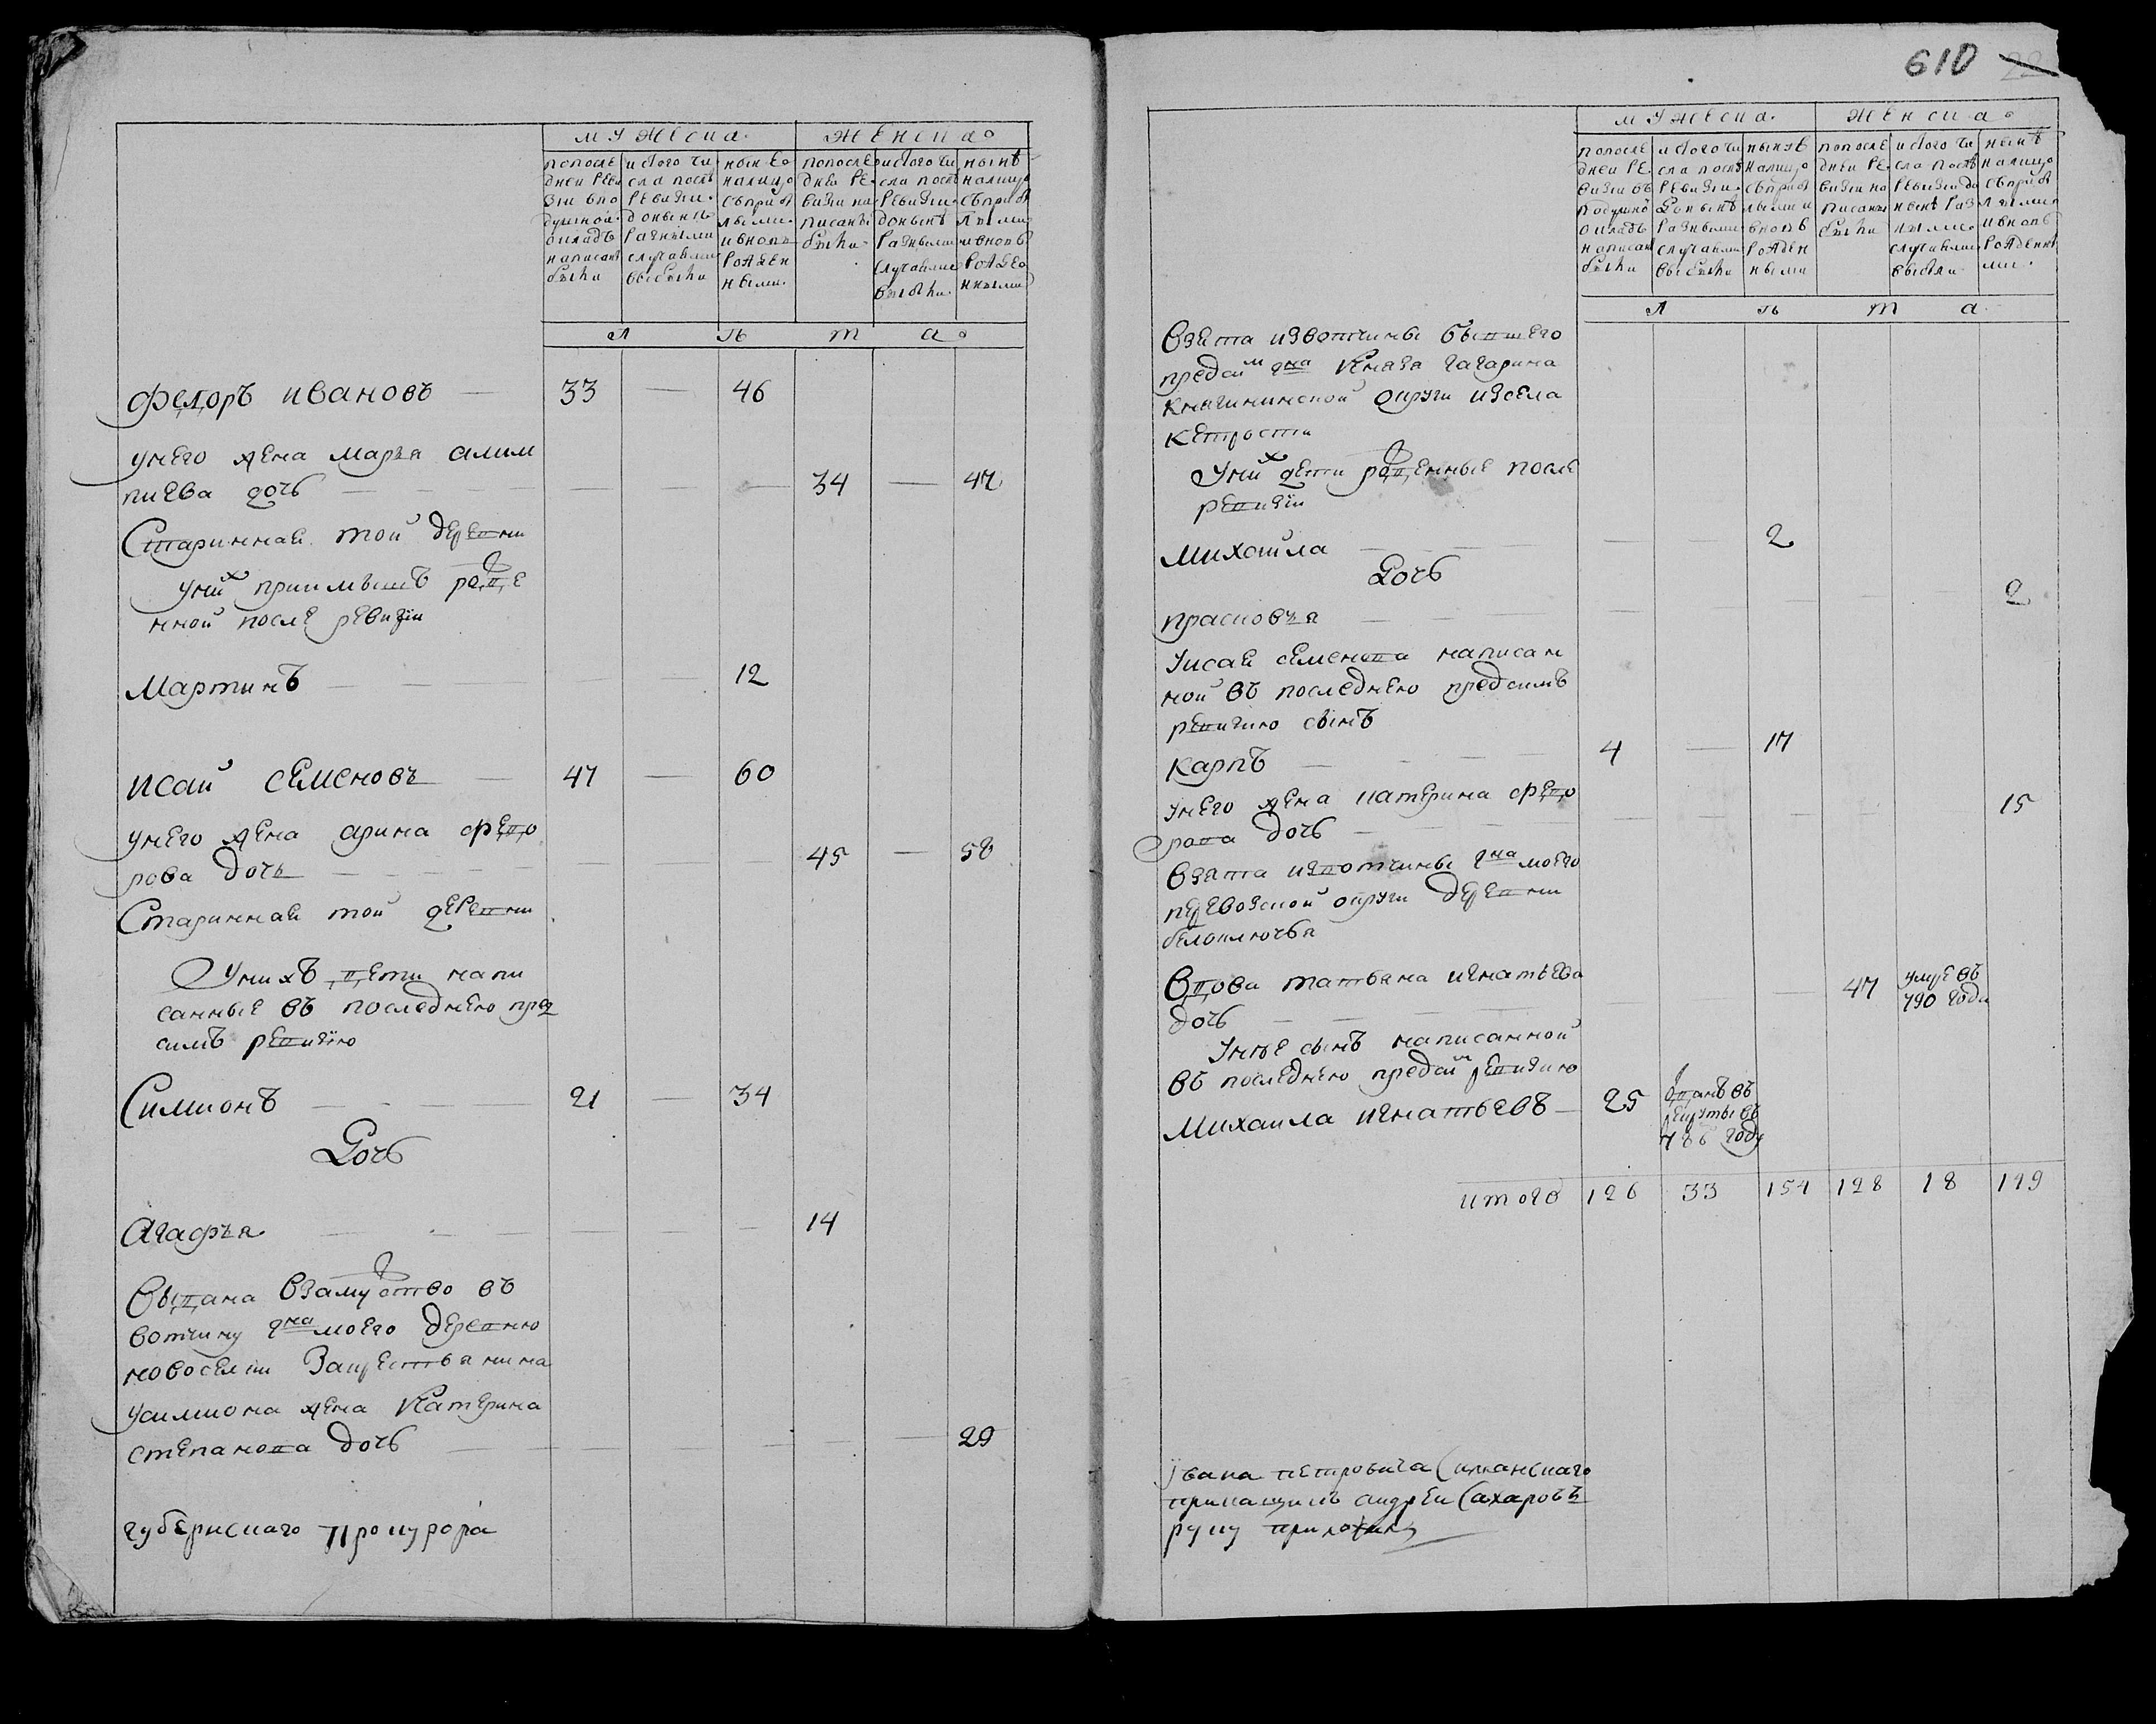 610 22
мужеска. женска.
попосле
дней реви
зии впо
душной
окладъ
написаны
были
исъ того чи
сла после
ревизии
до ныне
разными
случаями
выбыли
ныне
налицо
съ прибы
лыми
и вновь
рожден
ными.
попосле
дней ре
визии на
писаны
были
исъ того чи
сла после
ревизии
до ныне
разными
случаями
выбыли
ныне
налицо
съ прибы
лыми
и вновь
рожде
нными
Л ѣ т а
Федоръ Ивановъ — 33 — 46
унего жена марья алим
пиева дочь — 34 — 47
Стариннаѣ той деревни
униx приимышъ рожде
нной после ревизiи
Мартинъ — 12
исай семеновъ — 47 — 60
унего жена арина федо
рова дочь — 45 — 58
Стариннаѣ той деревни
Унихъ дети напи
санные въ последнею пред
симъ ревизiю
Симионъ — 21 — 34
Дочь
Агафья — 14
Выдана взамужство въ
вотчину гна моего деревню
новоселки Закрестьянина
усимиона жена Катерина
степанова дочь — 29
губернскаго Прокурора
мужеска. женска.
попосле
дней ре
визии въ
подушно
окладъ
написаны
были
исъ того чи
сла после
ревизии
до ныне
разными
случаями
выбыли
ныне
налицо
съ прибы
лыми и
вновь
рожден
ными
попосле
дней ре
визии на
писаны
были
исъ того чи
сла после
ревизии до
ныне раз
ными
случаями
выбыли
ныне
налицо
съ прибы
лыми
и вновь
рожденны
ми.
Л ѣ т а
Взята извотчины бывшего
предсим гна Князя гагарина
княгининской округи изсела
Кетрости
Уних дети рожденные после
ревизiи
Михайла — 2
Дочь
прасковья — 2
Уисаѣ семенова написан
ной въ последнею предсимъ
ревизию сынъ
Карпъ — 4 — 17
унего жена катерина федо
рова дочь — 15
Взята извотчины гна моего
перевозской округи деревни
белоключья
Вдова татьяна игнатьева
дочь — 47 умре въ
790 годе
Унѣе сынъ написанной
въ последнею предсим ревизию
Михаила игнатьевъ — 25 отданъ въ
рекруты въ
788 году
итого 126 33 154 128 18 149
Ивана петровича
прикащикъ андрей Сахаровъ
руку приложилъ